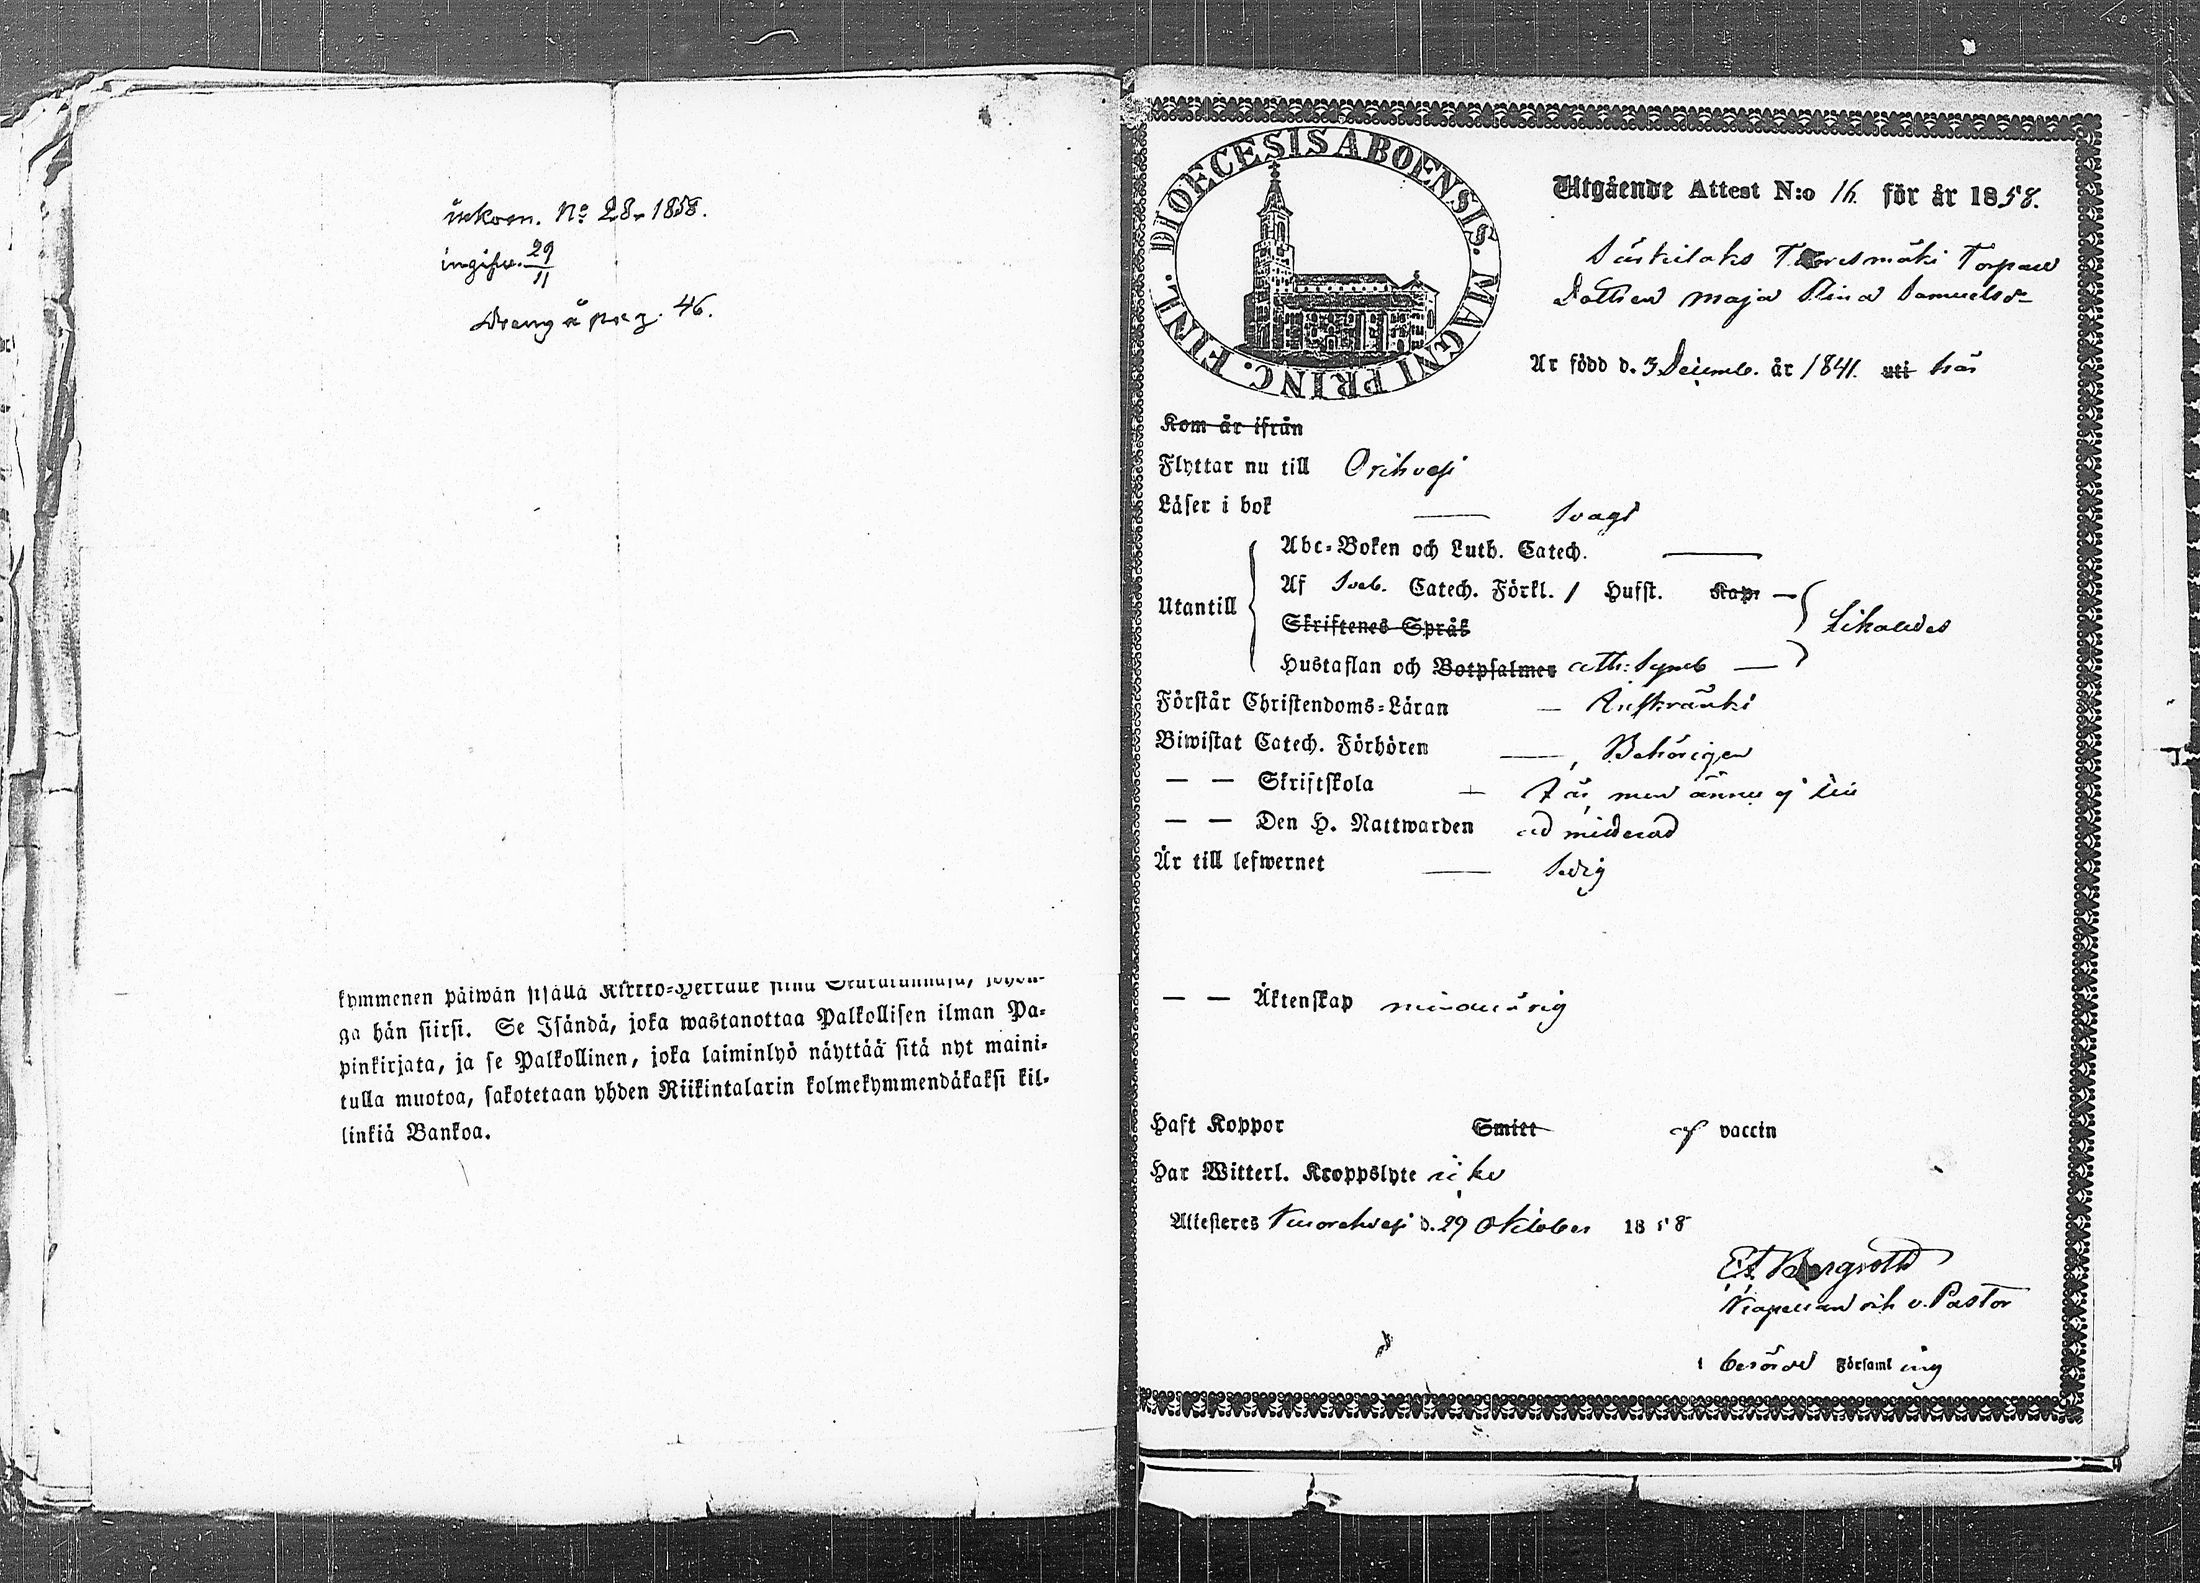 inkom. No 28. 1858.
ingifv. 29/11
Dräng å pag. 46.
kymmenen päiwän sisällä Kirkko-Herralle siinä Seurakunnasa, johon-
ga hän siirsi. Se Isändä, joka wastanottaa Palkollisen ilman Pa-
pinkirjata, ja se Palkollinen, joka laiminlyö näyttää sitä nyt maini-
tulla muotoa, sakotetaan yhden Riikintalarin kolmekymmendäkaksi kil-
linkiä Bankoa.
DIOECESIS ABOENSIS. MAGNI PRINC. FINL.
Utgående Attest N:o 16. för år 1858.
Torpare
Dottren Maja Stina Samuelsdr
Är född d. 3 Decemb. år 1841. uti här
Kom år ifrån
Flyttar nu till Orihvesi
Läser i bok — svagt
Abc-Boken och Luth. Catech. —
Utantill
Af Sveb. Catech. Förkl. / Hufst. Kap. —
Skriftenes Språk
Likaledes
Hustaflan och Botpsalmer Ath: Symb —
Förstår Christendoms-Läran — Inskränkt
Biwistat Catech. Förhören — Behörigen
— — Skriftskola — men ännu ej
— — Den H. Nattwarden admitterad
Är till lefwernet — Sedig
— — Äktenskap minderårig
Haft Koppor Smitt af vaccin
Har Witterl. Kroppslyte icke
Attesteres Kuorehvesi d. 29 Oktober 1858
Bergroth
Kapellan och v. Pastor
i berörde Församling